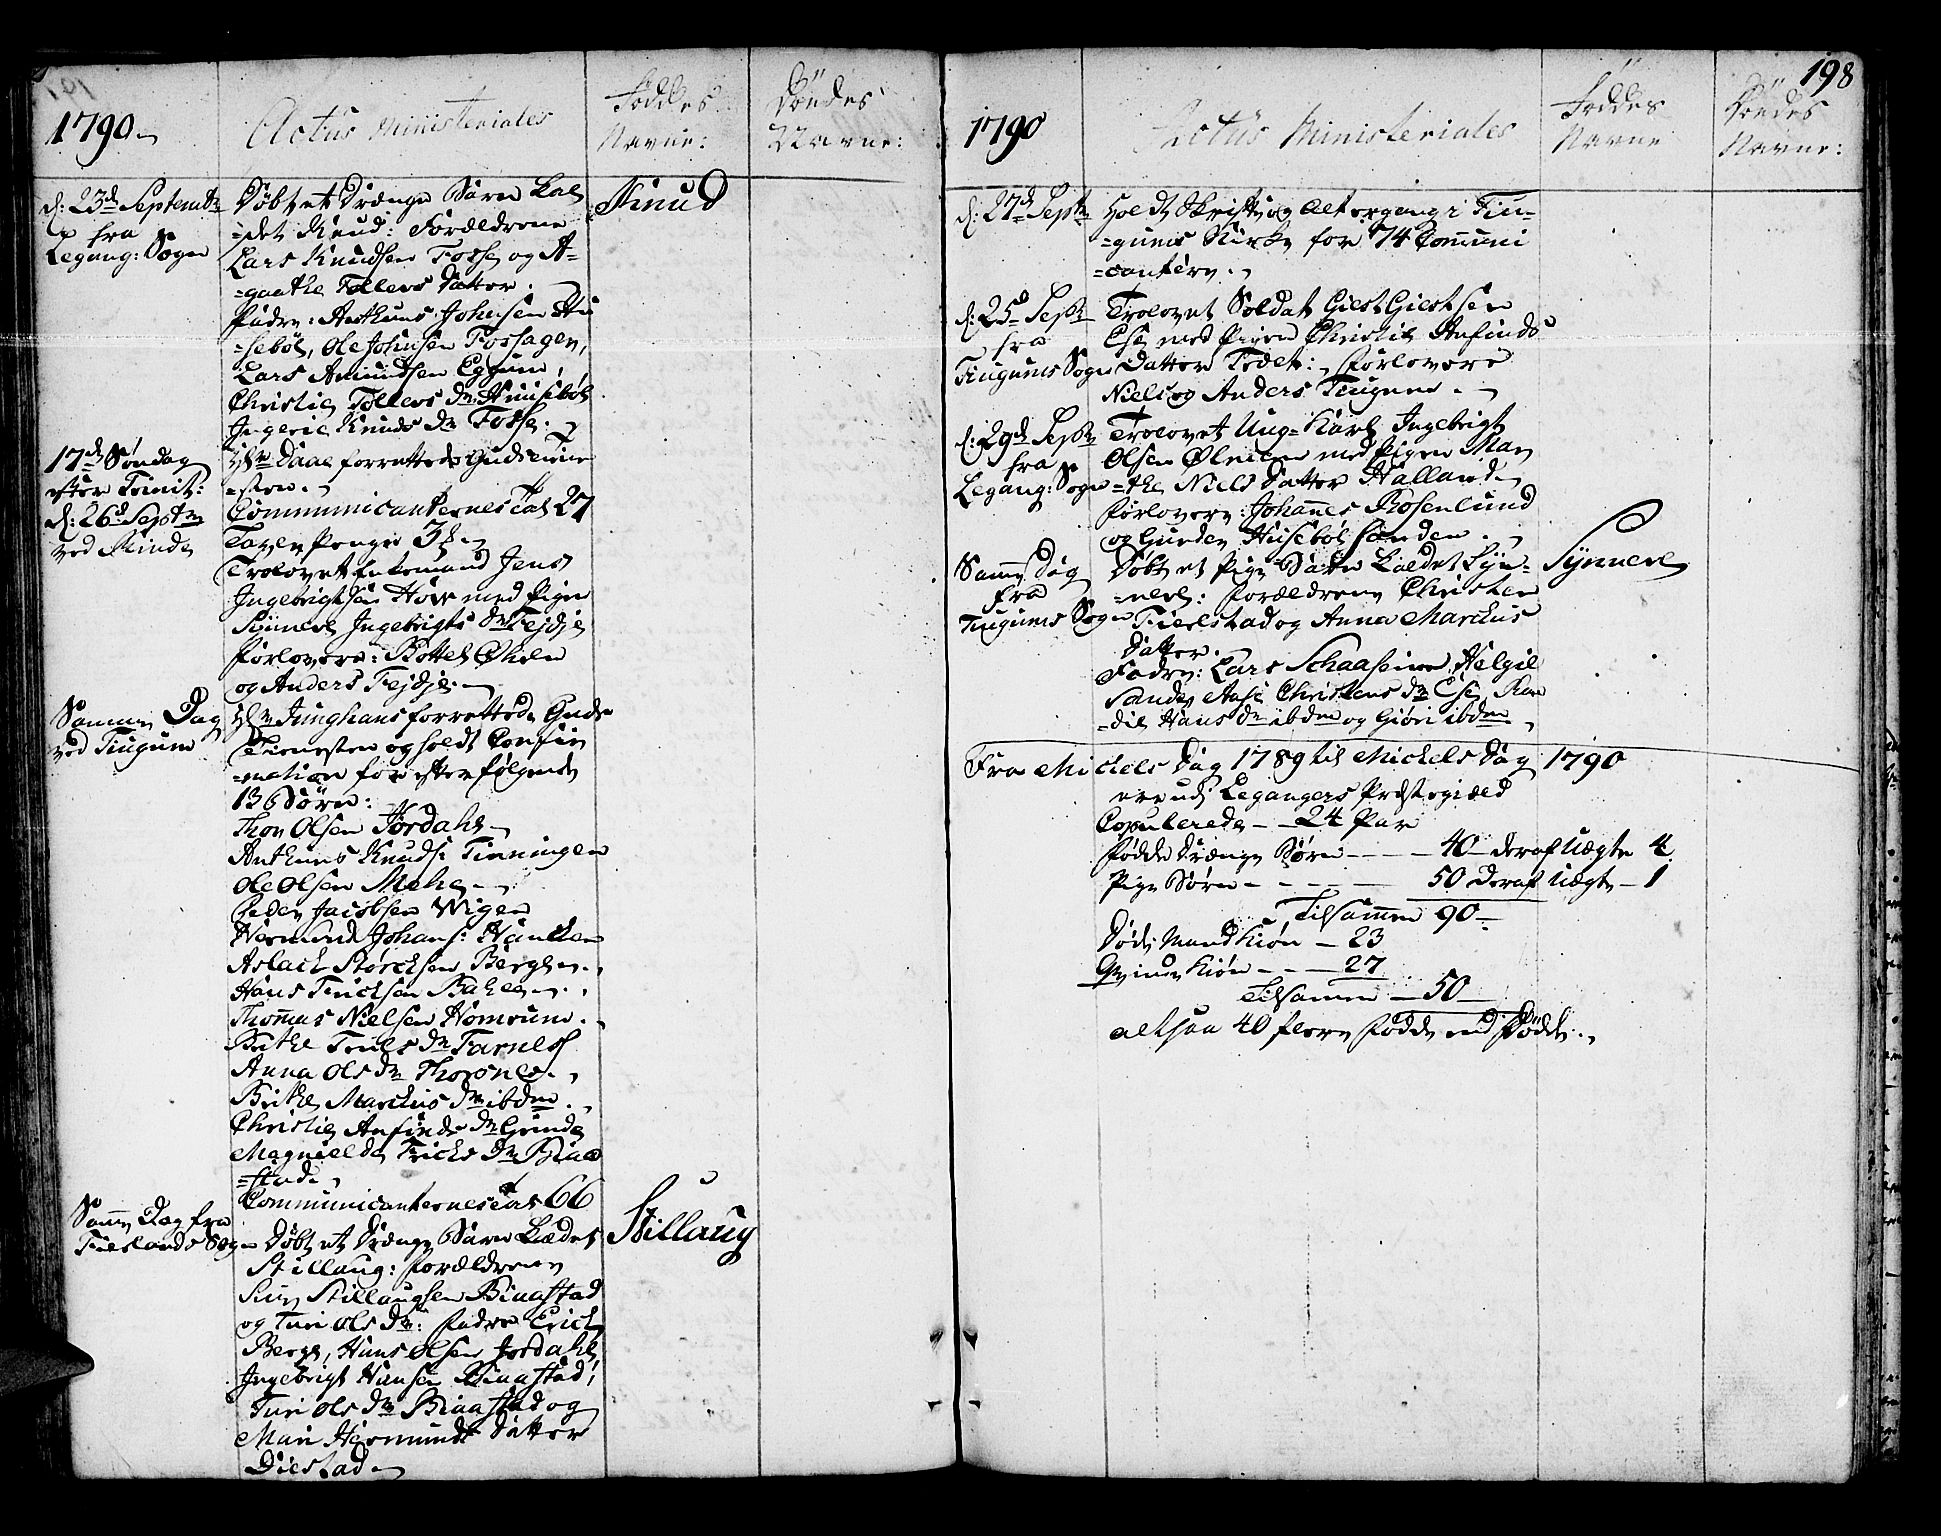 198
1790
Actus Ministeriales
Föddes
Navne:
Döedes
Navne:
d: 23de Septembr
fra
Legang: Sogn
Døbt et Drænge Barn kal
=det Knud: Forældrene
Lars Knudsen Fosse og A=
=gaathe Tollevs Datter.
Fadre: Anthuns Johnsen Hu
=sebøl, Ole Johnsen Fossagen,
Lars Amundsen Eggum,
Christie Tollevs Dr Huusebøl
Ingerie Knuds Dr Fosse.
Knud
17de Søndag
efter Trinit:
d: 26de Septr
ved Rinde
Hr Daae forrettede Gudstiene
=sten.
Communicanternes Tal 27
Tavle Penge 3
Trolovet Enkemand Jens
Ingebrigtsen Hove med Pigen
Synneve Ingebrigts Dr Fejdje
forlovere: Bottel Øhren
og Anders Fejdje.
Samme Dag
ved Tiugum
Hr Junghans forrettede Guds
Tienesten og holdt Confir
=mation for efterfølgende
13 Børn:
Thov Olsen Jordahl
Anthuns Knuds: Tinningen
Ole Olsen Mehe
Peder Jacobsen Wigen
Hermund Johans: Hancken
Aslack Størcksen Berge
Hans Ericksen Bahle
Thomas Nielsen Homrum.
Brithe Truls Dr Farnes
Anna Ols Dr Thorsnes.
Brithe Marckus Dr ibdm.
Christie Anfinds Dr Grinde
Magnielda Ericks Dr Biaa
=stad.
Communicanternes Tal 66
Samme Dag fra
Tieslands Sogn
Døbt et Drænge Barn kaldet
Stillaug: forældrene
Siur Stillaugsen Biaastad
og Turi Ols Dr: fadre Erick
Berge, Hans Olsen Jordahl,
Ingebrigt Hansen Biaastad,
Turi Ols Dr Biaastad og
Mari Hermunds Datter
Diestad
Stillaug
1790
Actus Ministeriales
Föddes
Navne
Döedes
Navne:
d: 27de Septr
Holdt Skrifte og Altergang i Tiu=
=gums Kirke for 74 Communi
=cantere.
d: 25de Septr
fra
Tiugums Sogn
Trolovet Soldat Giest Giestsen
Ese med Pigen Christie Anfinds
Datter Fedet: forlovere
Niels og Anders Tiugum.
d: 29de Septr
fra
Legang: Sogn
Trolovet Ung=Karl Ingebrigt
Olsen Øhrien med Pigen Mar
=the Niels Datter Halland
forlovere: Johannes Rosenlund
og Gunder Husebøl Sanden.
Samme Dag
fra
Tiugums Sogn
Døbt et Pige Barn kaldet Syn=
=neve: forældrene Christen
Tierlstad og Anna Marckus
Datter.
Fadre: Lars Schaasheim, Helgie
Sande, Aase Christens Dr Ese, Ran
=die Hans Dr ibdm og Giøri ibdm
Synneve
Fra Mickels Dag 1789 til Mickels Dag 1790
ere udj Legangers Præstegiæld
Copulerede - - 24 Par
fødde Drænge Børn - - - - 40 deraf Uægte 4
Pige Børn - - - - - 50 deraf Uægte - 1
Tilsammen 90
Døde Mandkiøn - 23
Qvindekiøn - - - 27
Tilsammen - 50
altsaa 40 flere fødde end Døde.